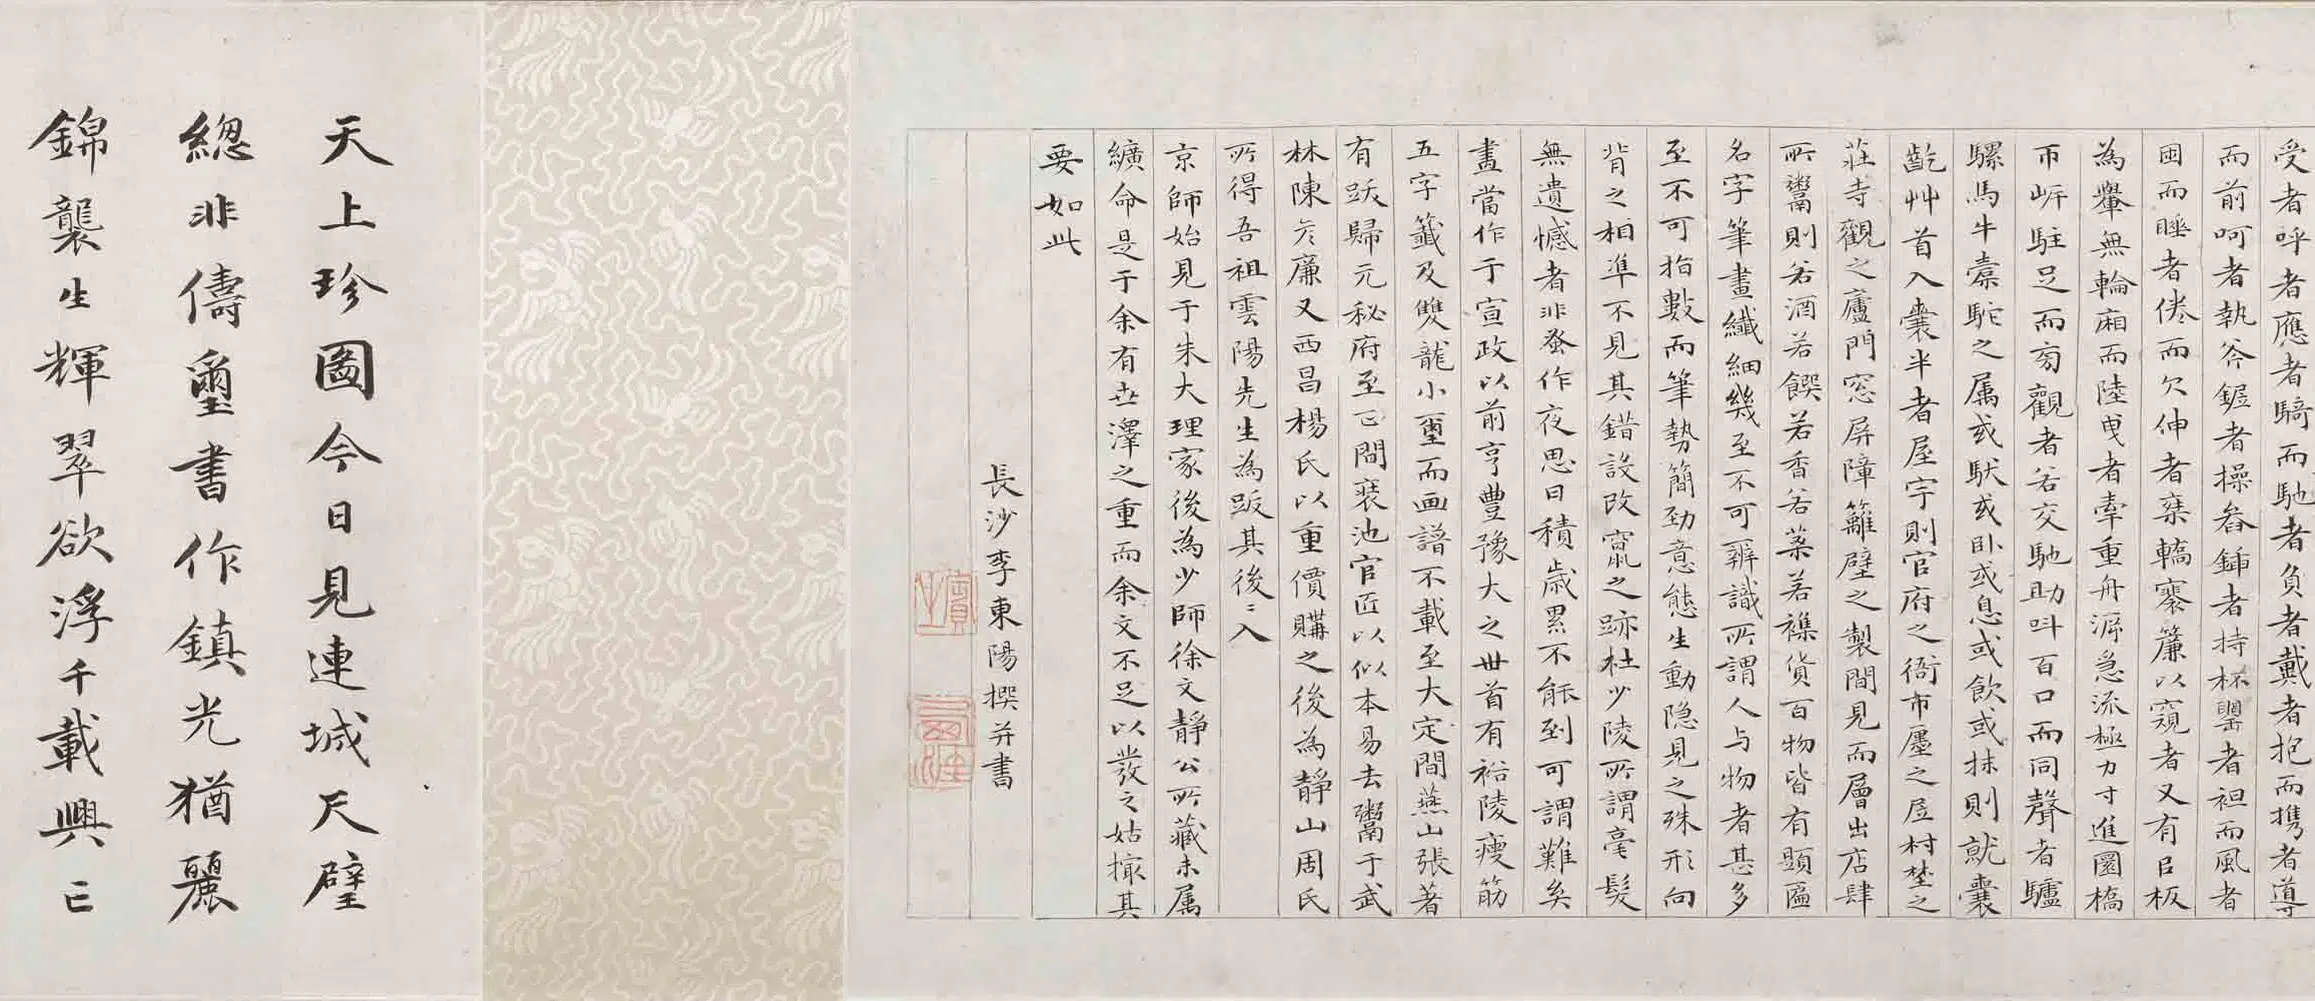 受者呼者應者騎而馳者負者戴者抱而攜者導
而前呵者執斧鋸者操畚鍤者持杯罌者袒而風者
困而睡者倦而欠伸者乘轎褰簾以窺者又有以板
為轝無輪廂而陸曳者牽重舟溯急流極力寸進圜橋
帀岸駐足而旁觀者若交馳助叫百口而同聲者驢
騾馬牛橐駝之属或馱或臥或息或飲或秣則就囊
齕艸首入囊半者屋宇則官府之衙市廛之居村埜之
莊寺觀之廬門窓屏障籬壁之製間見而層出店肆
所鬻則若酒若饌若香若藥若襍貨百物皆有題匾
名字筆畫纖細幾至不可辨識所謂人与物者甚多
至不可指數而筆勢簡勁意態生動隐見之殊形向
背之相準不見其錯設改竄之跡杜少陵所謂毫髮
無遺憾者非蚤作夜思日積歳累不能到可謂難矣
畫當作于宣政以前亨豊豫大之世首有裕陵瘦筋
五字籤及雙龍小璽而画譜不載至大定間燕山張著
有跋歸元秘府至正間裝池官匠以似本易去鬻于武
林陳彥廉又西昌楊氏以重價購之後為靜山周氏
所得吾祖雲陽先生為跋其後〻入
京師始見于朱大理家後為少師徐文靜公所藏未属
纊命是于余有世澤之重而余文不足以發之姑撮其
要如此
長沙李東陽撰并書
天上珍圖今日見連城尺璧
總非儔璽書作鎮光猶麗
錦襲生輝翠欲浮千載興亡